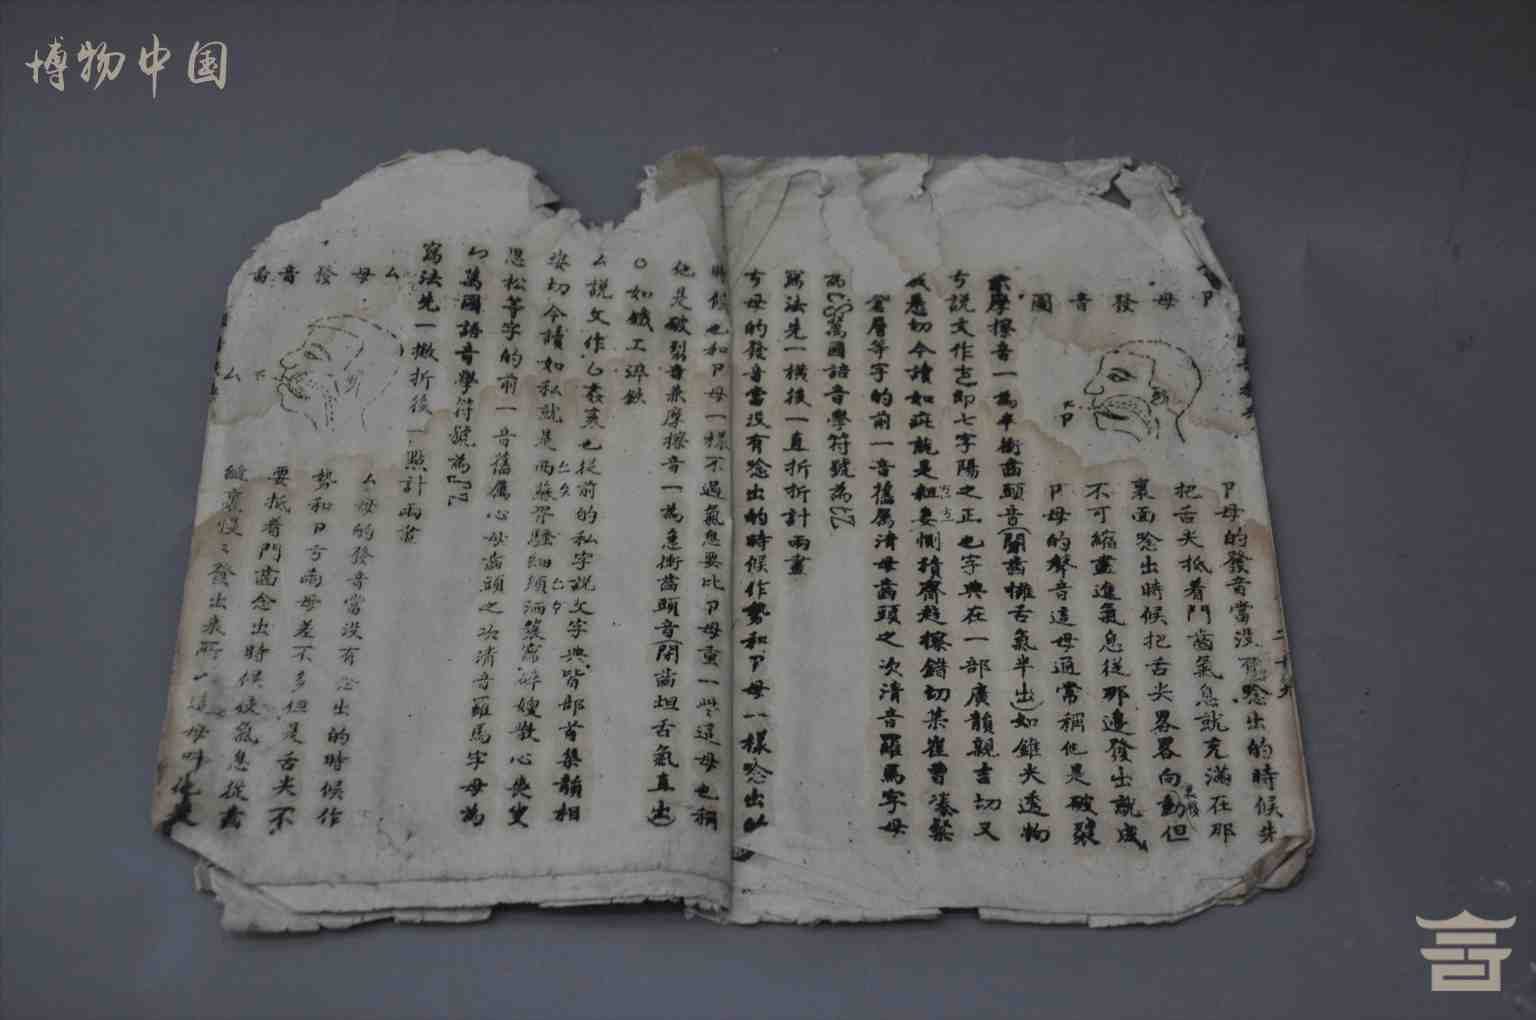 博物中国
ㄗ母發音圖
ㄗ母的發音當没有唸出的時候先
把舌尖抵着門齒氣息就充滿在那
裏面唸出時候把舌尖畧畧向動但
不可縮盡進氣息從那邊發出就成
ㄗ母的聲音這母通常稱他是破裂
兼摩擦音一為半衝齒頭音(開齒舌氣半出)如錐尖透物
ㄘ說文作即七字陽之正也字典在一部廣韻親吉切又
戚悉切今讀如疵就是粗妻惻積齋趁擦錯切菜崔曹湊粲
倉層等字的前一音舊屬清母齒頭之次清音羅馬字母
為萬國語音學符號為
寫法先一橫後一直折折計兩畫
ㄘ母的發音當没有唸出的時候作勢和ㄗ母一樣唸出的
時候也和ㄗ母一樣不過氣息要比ㄗ母重一些這母也稱
他是破裂音兼摩擦音一為透衝齒頭音(閉齒坦舌氣直出)
如娥工淬鉄
ㄙ說文作也從前的私字說文字典皆部首集韻相
姿切今讀如私就是西蘇騷細須洒簑嫂散心喪叟
思松等字的前一音舊屬心母齒頭之次清音羅馬字母為
萬國語音學符號為
寫法先一撇折後一點計兩畫
ㄙ母發音圖
ㄙ母的發音當没有唸出的時候作
勢和ㄗㄘ兩母差不多但是舌尖不
要抵着門齒念出時候使氣息從齒
縫裏慢慢發出來所一這母叫他是